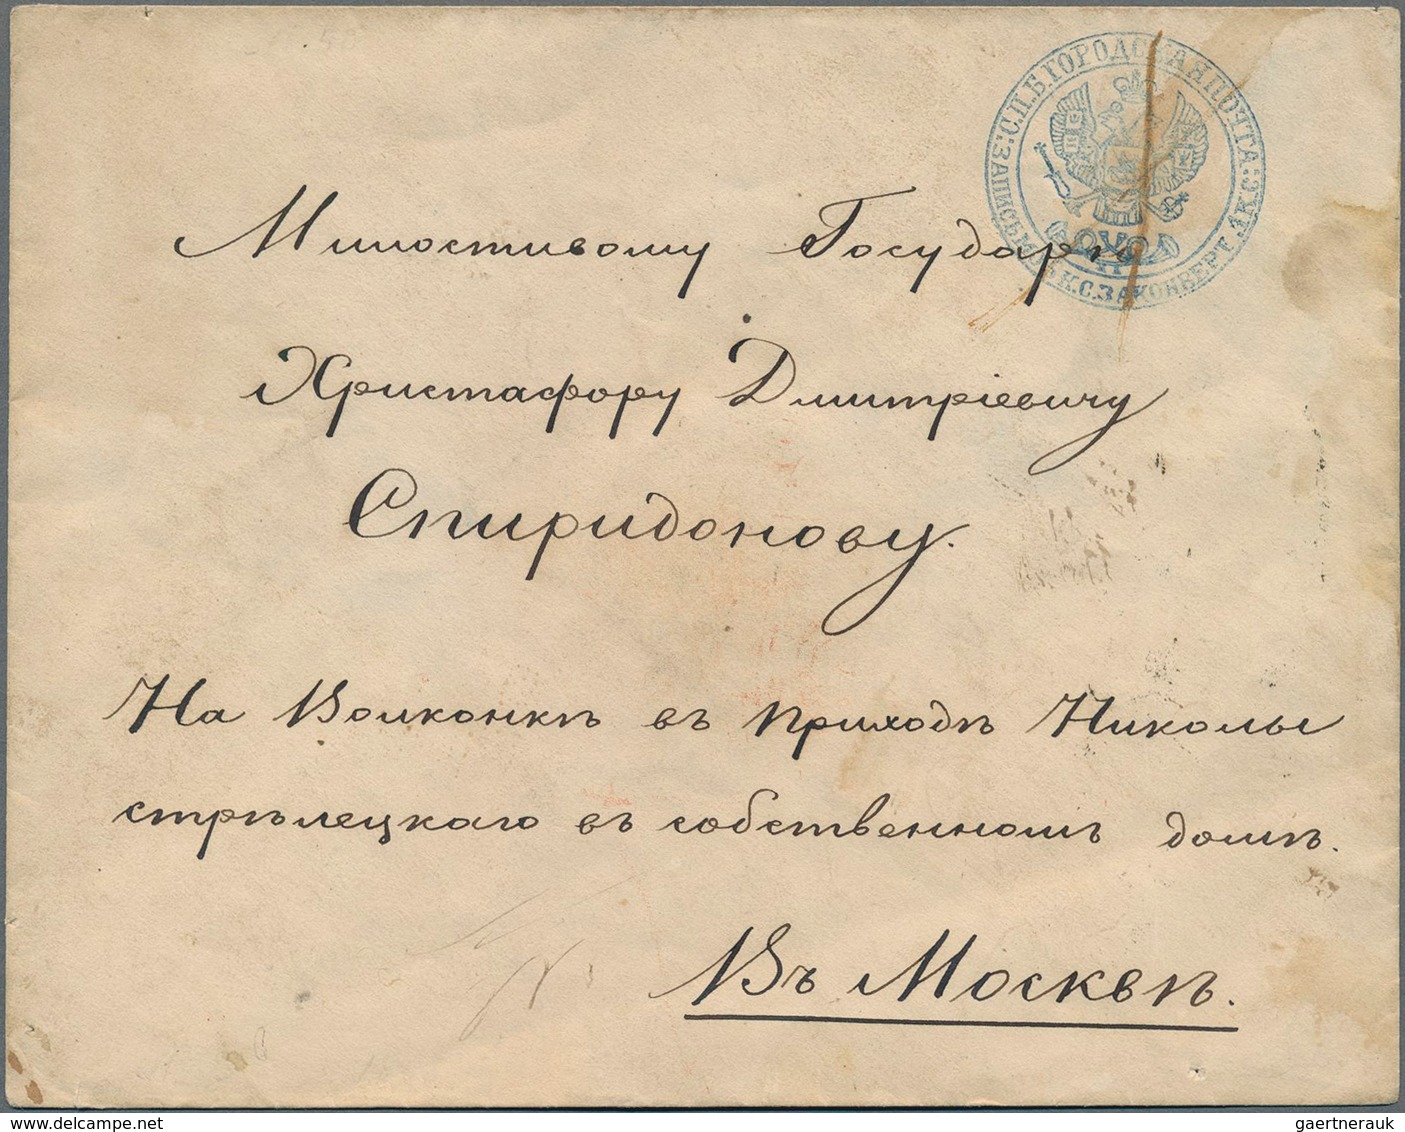 С.П.Б. ГОРОДСКАЯ ПОЧТА:
ЗА ПИСЬМО 5 К.С. ЗА КОНВЕРТ. 1 К.С:
Милостивому Государю
Христафору Дмитріевичу
Спиридонову.
На Волконкѣ въ приходѣ Николы
стрѣлецкаго въ собственномъ домѣ.
Въ Москвѣ.
gaertnerauk
www.delcampe.net